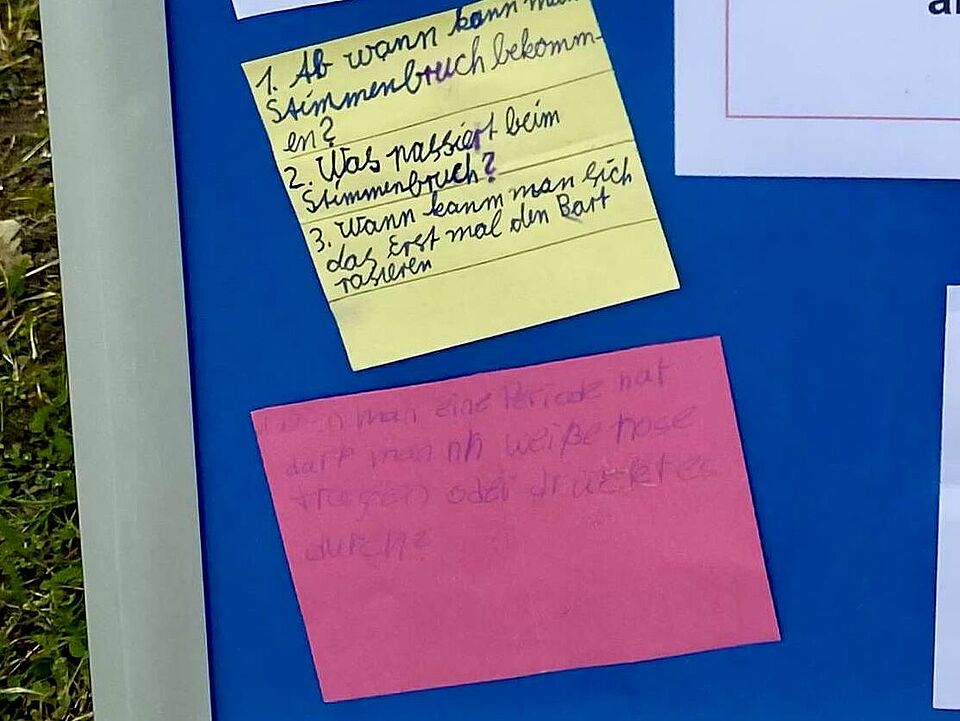 1. Ab wann kann man
Stimmenbruch bekomm-
en?
2. Was passiert beim
Stimmenbruch?
3. Wann kanm man sich
das Erst mal den Bart
rasieren
man eine Periode hat
darf man weiße hose
tragen oder drückt es
durch?